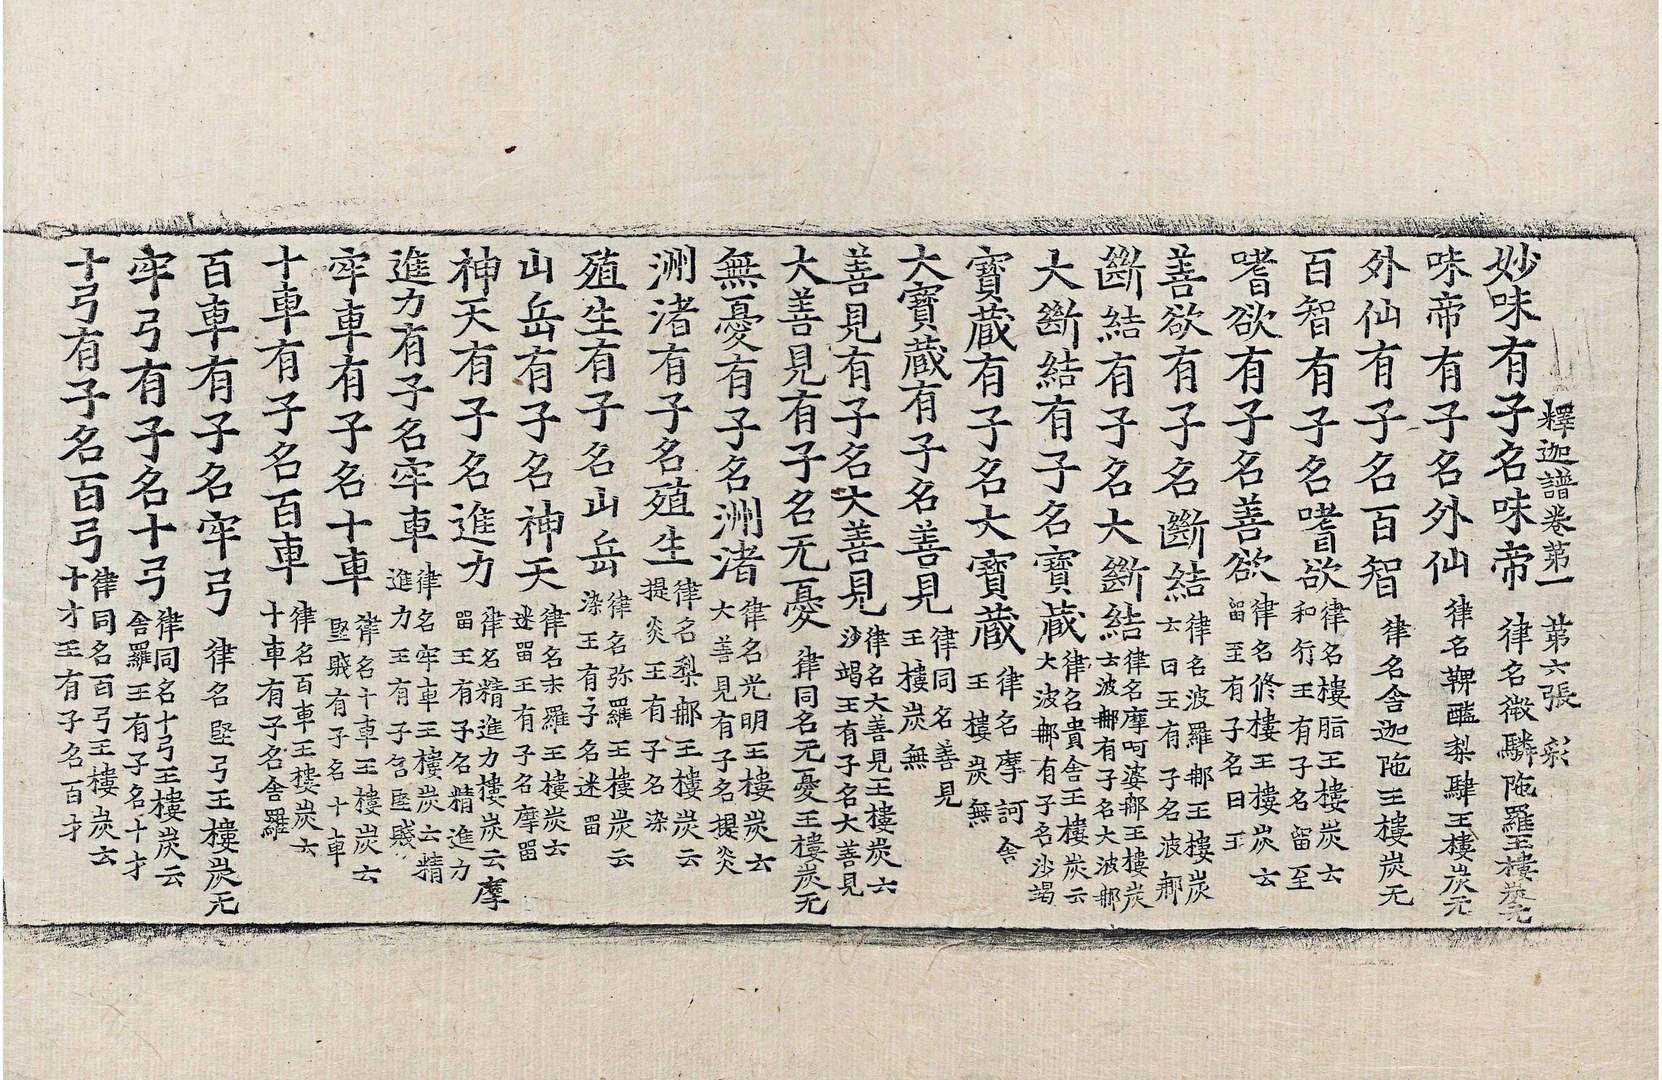 釋迦譜卷第一 第六張 彩
妙味有子名味帝 律名微驎陁羅王樓炭无
味帝有子名外仙 律名鞞醯梨肆王樓炭无
外仙有子名百智 律名舍迦陁王樓炭无
百智有子名嗜欲 律名樓脂王樓炭云和行王有子名留至
嗜欲有子名善欲 律名修樓王樓炭云留至有子名日王
善欲有子名斷結 律名波羅那王樓炭云日王有子名波那
斷結有子名大斷結 律名摩呵婆那王樓炭云波那有子名大波那
大斷結有子名寶蔵 律名貴舍王樓炭云大波那有子名沙竭
寶蔵有子名大寶蔵 律名摩訶舍王樓炭無
大寶蔵有子名善見 律同名善見王樓炭無
善見有子名大善見 律名大善見王樓炭云沙竭王有子名大善見
大善見有子名无憂 律同名无憂王樓炭无
無憂有子名洲渚 律名光明王樓炭云大善見有子名提炎
洲渚有子名殖生 律名梨那王樓炭云提炎王有子名染
殖生有子名山岳 律名弥羅王樓炭云染王有子名迷留
山岳有子名神天 律名末羅王樓炭云迷留王有子名摩留
神天有子名進力 律名精進力樓炭云摩留王有子名精進力
進力有子名牢車 律名牢車王樓炭云精進力王有子名堅𨏔
牢車有子名十車 律名十車王樓炭云堅𨏔有子名十車
十車有子名百車 律名百車王樓炭云十車有子名舍羅
百車有子名牢弓 律名堅弓王樓炭无
牢弓有子名十弓 律同名十弓王樓炭云舍羅王有子名十才
十弓有子名百弓 律同名百弓王樓炭云十才王有子名百才